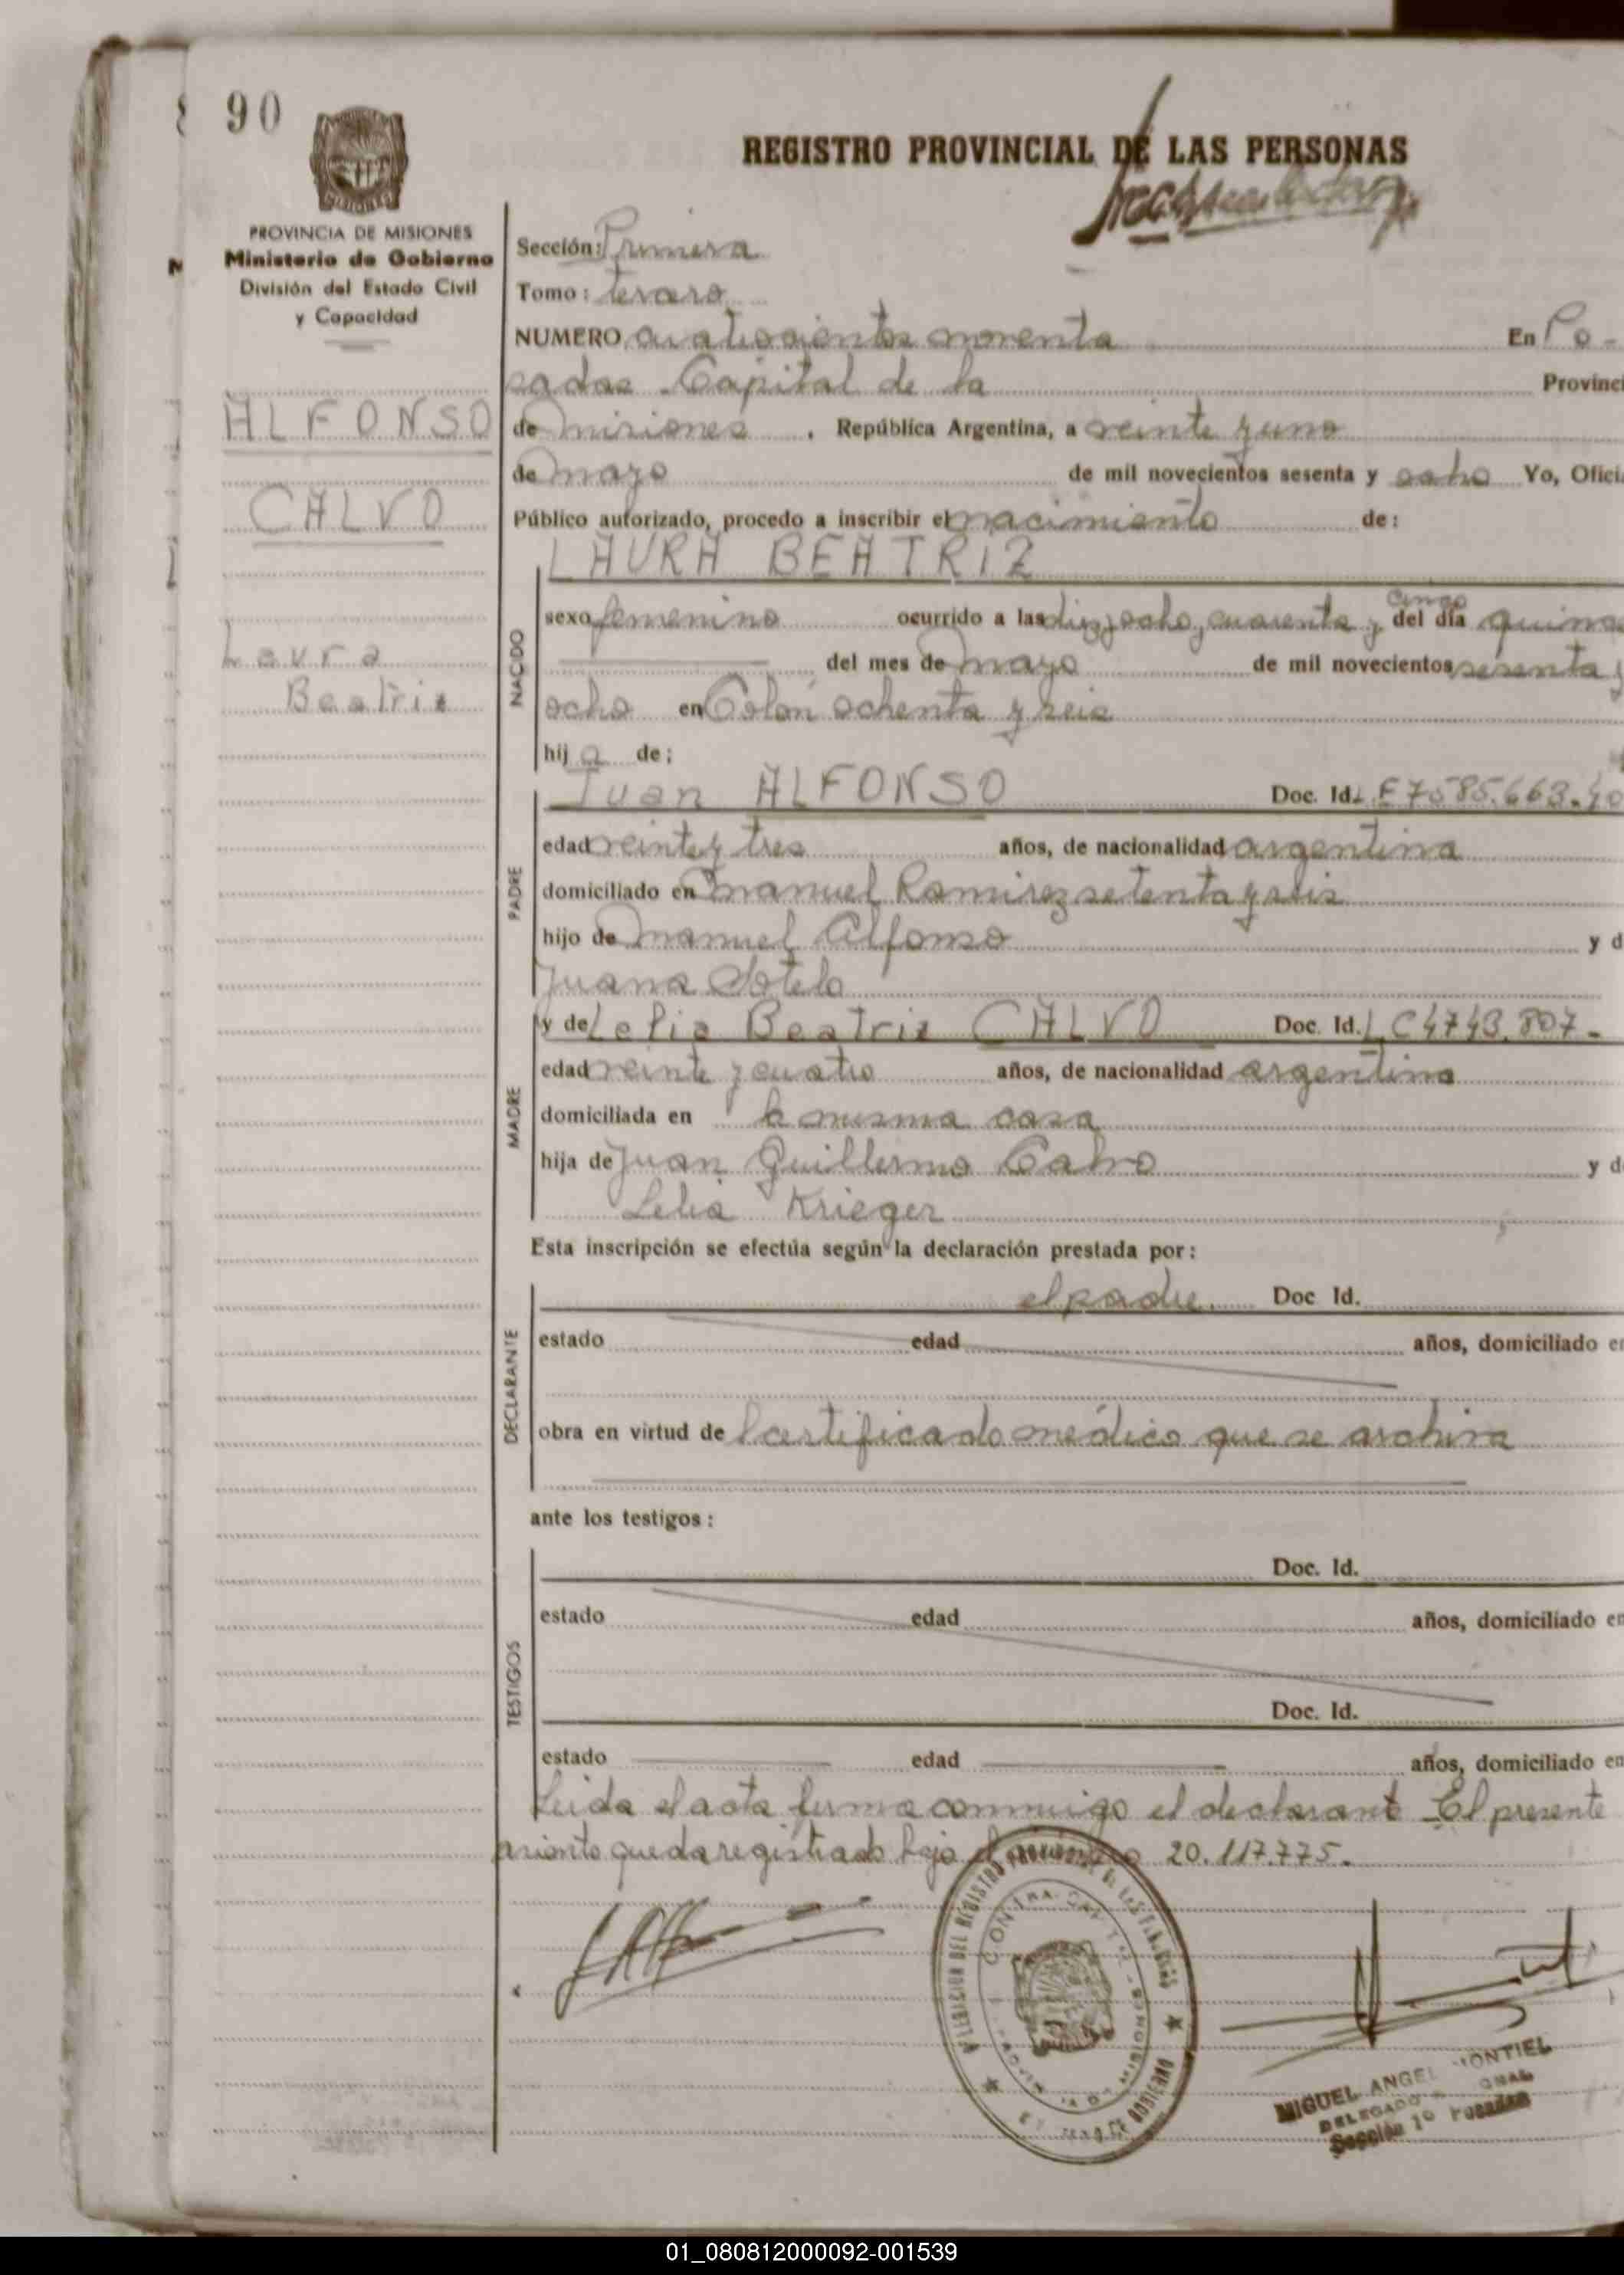 90
REGISTRO PROVINCIAL DE LAS PERSONAS
PROVINCIA DE MISIONES
Ministerio de Gobierno
División del Estado Civil
y Capacidad
ALFONSO
CALVO
Laura
Beatriz
Sección: Primera
Tomo: tercero
NUMERO cuatrocientos noventa En Po-
sadas Capital de la Provinci
de Misiones, República Argentina, a veinte y uno
de Mayo de mil novecientos sesenta y ocho Yo, Ofici
Público autorizado, procedo a inscribir el nacimiento de:
LAURA BEATRIZ
NACIDO
cinco
sexo femenino ocurrido a las diez y ocho, cuarenta y del día quince
del mes de Mayo de mil novecientos sesenta y
ocho en Colón ochenta y seis
hija de:
PADRE
Juan ALFONSO Doc. Id. L E 7585.663.
edad veinte y tres años, de nacionalidad argentina
domiciliado en Manuel Ramirez setenta y seis
hijo de Manuel Alfonso y d
Juana Sotelo
MADRE
y de Lelia Beatriz CALVO Doc. Id. L C 4743.807-
edad veinte y cuatro años, de nacionalidad argentina
domiciliada en la misma casa
hija de Juan Guillermo Calvo y d
Lelia Krieger
Esta inscripción se efectúa según la declaración prestada por:
DECLARANTE
el padre. Doc Id.
estado edad años, domiciliado en
obra en virtud de certificado médico que se archiva
ante los testigos:
TESTIGOS
Doc. Id.
estado edad años, domiciliado en
Doc. Id.
estado edad años, domiciliado en
Leida el acta firma conmigo el declarante El presente
asiento queda registrado bajo el número 20.117.775.
MIGUEL ANGEL MONTIEL
DELEGADO
Sección 1º Posadas
01_080812000092-001539